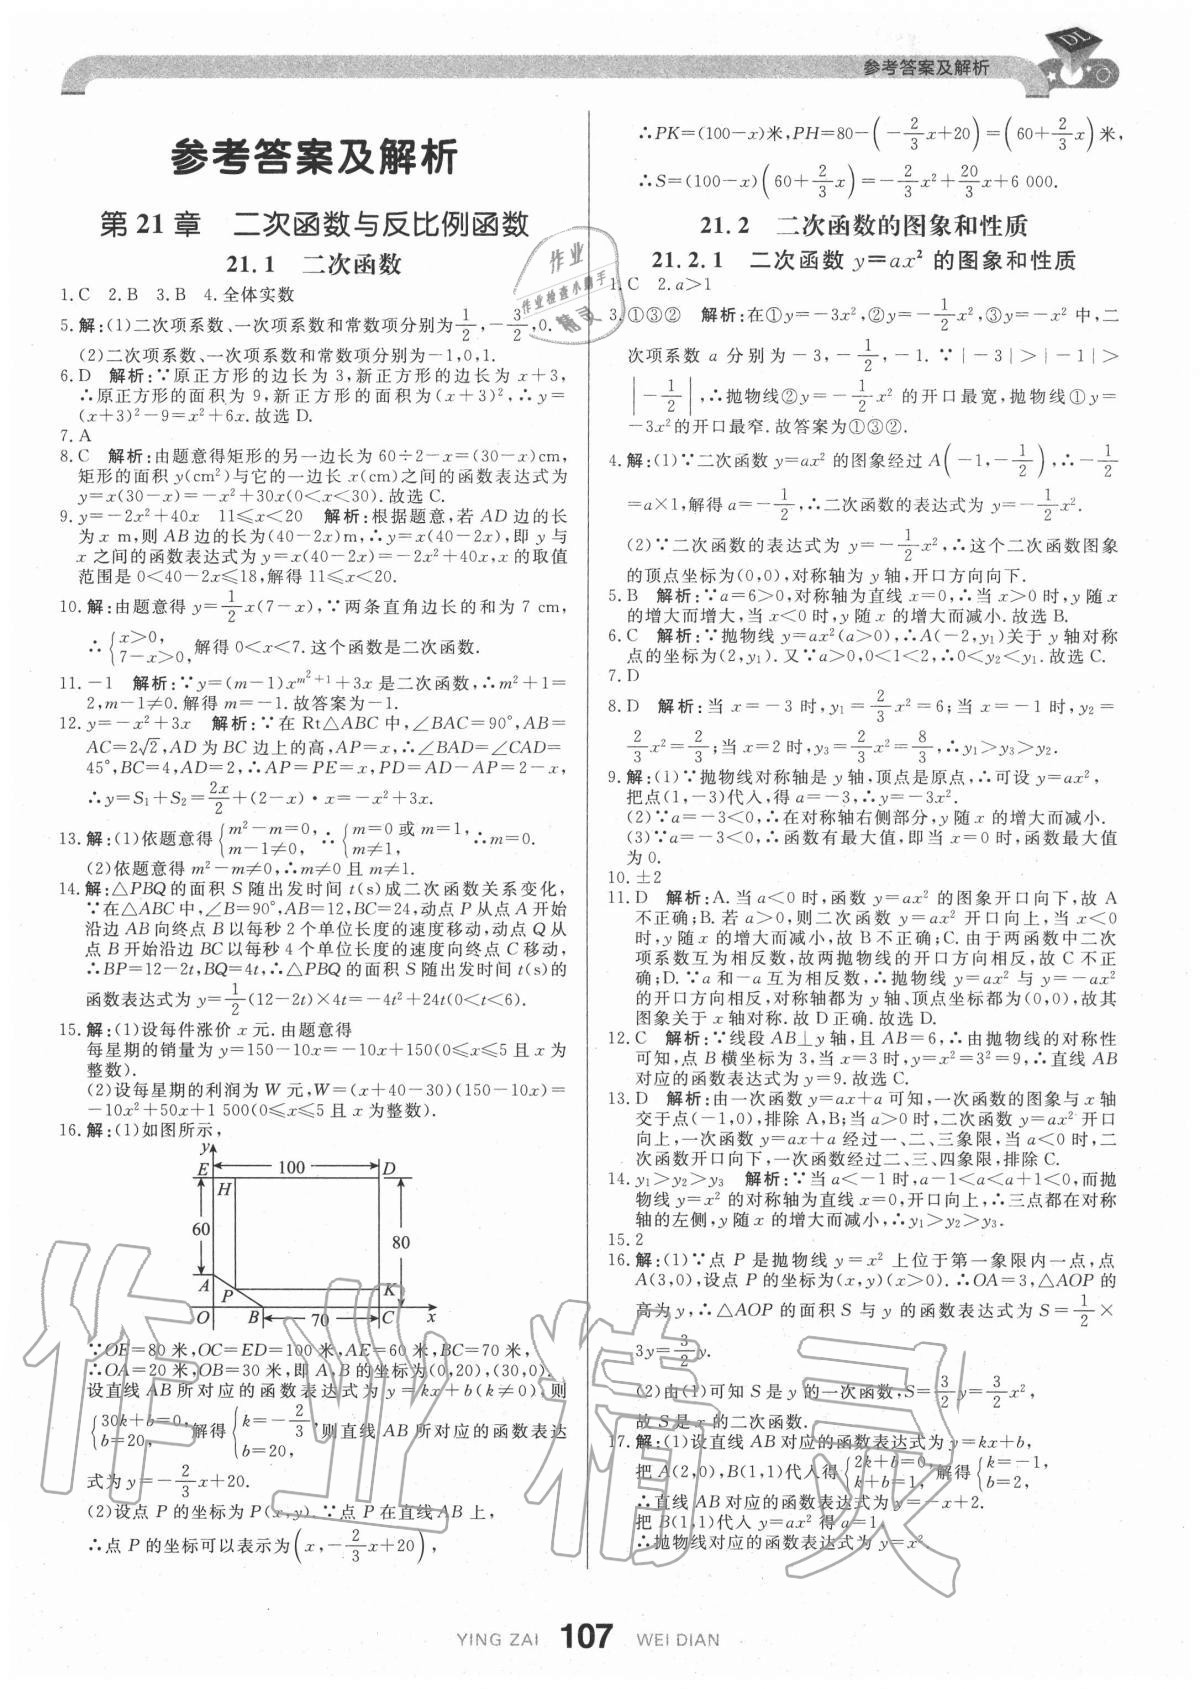 参考答案及解析
DL
参考答案及解析
第 21 章　二次函数与反比例函数
21.1　二次函数
1.C　2.B　3.B　4.全体实数
5.解:(1)二次项系数、一次项系数和常数项分别为1/2,-3/2,0.
(2)二次项系数、一次项系数和常数项分别为-1,0,1.
6.D　解析:∵原正方形的边长为 3,新正方形的边长为 x+3,
∴原正方形的面积为 9,新正方形的面积为(x+3)²,∴y=
(x+3)²-9=x²+6x.故选 D.
7.A
8.C　解析:由题意得矩形的另一边长为 60÷2-x=(30-x)cm,
矩形的面积 y(cm²)与它的一边长 x(cm)之间的函数表达式为
y=x(30-x)=-x²+30x(0<x<30).故选 C.
9.y=-2x²+40x　11⩽x<20　解析:根据题意,若 AD 边的长
为 x m,则 AB 边的长为(40-2x)m,∴y=x(40-2x),即 y 与
x 之间的函数表达式为 y=x(40-2x)=-2x²+40x,x 的取值
范围是 0<40-2x⩽18,解得 11⩽x<20.
10.解:由题意得 y=1/2x(7-x),∵两条直角边长的和为 7 cm,
∴{x>0, 7-x>0,解得 0<x<7.这个函数是二次函数.
11.-1　解析:∵y=(m-1)x^(m²+1)+3x 是二次函数,∴m²+1=
2,m-1≠0.解得 m=-1.故答案为-1.
12.y=-x²+3x　解析:∵在 Rt△ABC 中,∠BAC=90°,AB=
AC=2√2,AD 为 BC 边上的高,AP=x,∴∠BAD=∠CAD=
45°,BC=4,AD=2,∴AP=PE=x,PD=AD-AP=2-x,
∴y=S₁+S₂=2x/2+(2-x)·x=-x²+3x.
13.解:(1)依题意得{m²-m=0, m-1≠0,∴{m=0 或 m=1, m≠1,∴m=0.
(2)依题意得 m²-m≠0,∴m≠0 且 m≠1.
14.解:△PBQ的面积 S 随出发时间 t(s)成二次函数关系变化,
∵在△ABC中,∠B=90°,AB=12,BC=24,动点 P 从点 A 开始
沿边 AB 向终点 B 以每秒 2 个单位长度的速度移动,动点 Q从
点 B 开始沿边 BC以每秒 4 个单位长度的速度向终点 C 移动,
∴BP=12-2t,BQ=4t,∴△PBQ的面积 S 随出发时间 t(s)的
函数表达式为 y=1/2(12-2t)×4t=-4t²+24t(0<t<6).
15.解:(1)设每件涨价 x 元.由题意得
每星期的销量为 y=150-10x=-10x+150(0⩽x⩽5 且 x 为
整数).
(2)设每星期的利润为 W 元,W=(x+40-30)(150-10x)=
-10x²+50x+1 500(0⩽x⩽5 且 x 为整数).
16.解:(1)如图所示,
y
E 100 D
H
60
80
A P K
O B 70 C x
∵OE=80 米,OC=ED=100 米,AE=60 米,BC=70 米,
∴OA=20 米,OB=30 米,即 A,B 的坐标为(0,20),(30,0).
设直线 AB 所对应的函数表达式为 y=kx+b(k≠0),则
{30k+b=0, b=20,解得{k=-2/3, b=20,则直线 AB 所对应的函数表达
式为 y=-2/3x+20.
(2)设点 P 的坐标为 P(x,y).∵点 P 在直线 AB 上,
∴点 P 的坐标可以表示为(x,-2/3x+20),
∴PK=(100-x)米,PH=80-(-2/3x+20)=(60+2/3x)米,
∴S=(100-x)(60+2/3x)=-2/3x²+20/3x+6 000.
21.2　二次函数的图象和性质
21.2.1　二次函数 y=ax² 的图象和性质
1.C　2.a>1
3.①③②　解析:在①y=-3x²,②y=-1/2x²,③y=-x² 中,二
次项系数 a 分别为-3,-1/2,-1.∵|-3|>|-1|>
|-1/2|,∴抛物线②y=-1/2x² 的开口最宽,抛物线①y=
-3x²的开口最窄.故答案为①③②.
4.解:(1)∵二次函数 y=ax² 的图象经过 A(-1,-1/2),∴-1/2
=a×1,解得 a=-1/2,∴二次函数的表达式为 y=-1/2x².
(2)∵二次函数的表达式为 y=-1/2x²,∴这个二次函数图象
的顶点坐标为(0,0),对称轴为 y 轴,开口方向向下.
5.B　解析:∵a=6>0,对称轴为直线 x=0,∴当 x>0 时,y 随 x
的增大而增大,当 x<0 时,y 随 x 的增大而减小.故选 B.
6.C　解析:∵抛物线 y=ax²(a>0),∴A(-2,y₁)关于 y 轴对称
点的坐标为(2,y₁).又∵a>0,0<1<2,∴0<y₂<y₁.故选 C.
7.D
8.D　解析:当 x=-3 时,y₁=2/3x²=6;当 x=-1 时,y₂=
2/3x²=2/3;当 x=2 时,y₃=2/3x²=8/3,∴y₁>y₃>y₂.
9.解:(1)∵抛物线对称轴是 y 轴,顶点是原点,∴可设 y=ax²,
把点(1,-3)代入,得 a=-3,∴y=-3x².
(2)∵a=-3<0,∴在对称轴右侧部分,y 随 x 的增大而减小.
(3)∵a=-3<0,∴函数有最大值,即当 x=0 时,函数最大值
为 0.
10.±2
11.D　解析:A.当 a<0 时,函数 y=ax² 的图象开口向下,故 A
不正确;B.若 a>0,则二次函数 y=ax² 开口向上,当 x<0
时,y 随 x 的增大而减小,故 B不正确;C.由于两函数中二次
项系数互为相反数,故两抛物线的开口方向相反,故 C 不正
确;D.∵a 和-a 互为相反数,∴抛物线 y=ax² 与 y=-ax²
的开口方向相反,对称轴都为 y 轴、顶点坐标都为(0,0),故其
图象关于 x 轴对称.故 D 正确.故选 D.
12.C　解析:∵线段 AB⊥y 轴,且 AB=6,∴由抛物线的对称性
可知,点 B 横坐标为 3,当 x=3 时,y=x²=3²=9,∴直线 AB
对应的函数表达式为 y=9.故选 C.
13.D　解析:由一次函数 y=ax+a 可知,一次函数的图象与 x 轴
交于点(-1,0),排除 A,B;当 a>0 时,二次函数 y=ax² 开口
向上,一次函数 y=ax+a 经过一、二、三象限,当 a<0 时,二
次函数开口向下,一次函数经过二、三、四象限,排除 C.
14.y₁>y₂>y₃　解析:∵当 a<-1 时,a-1<a<a+1<0,而抛
物线 y=x² 的对称轴为直线 x=0,开口向上,∴三点都在对称
轴的左侧,y 随 x 的增大而减小,∴y₁>y₂>y₃.
15.2
16.解:(1)∵点 P 是抛物线 y=x² 上位于第一象限内一点,点
A(3,0),设点 P 的坐标为(x,y)(x>0).∴OA=3,△AOP 的
高为 y,∴△AOP 的面积 S 与 y 的函数表达式为 S=1/2×
3y=3/2y.
(2)由(1)可知 S是 y 的一次函数,S=3/2y=3/2x²,
故 S是 x 的二次函数.
17.解:(1)设直线 AB 对应的函数表达式为 y=kx+b,
把 A(2,0),B(1,1)代入得{2k+b=0, k+b=1,解得{k=-1, b=2,
∴直线 AB 对应的函数表达式为 y=-x+2.
把 B(1,1)代入 y=ax² 得 a=1
∴抛物线对应的函数表达式为 y=x².
作业
作业检查小助手
精灵
作业精灵
YING ZAI　107　WEI DIAN